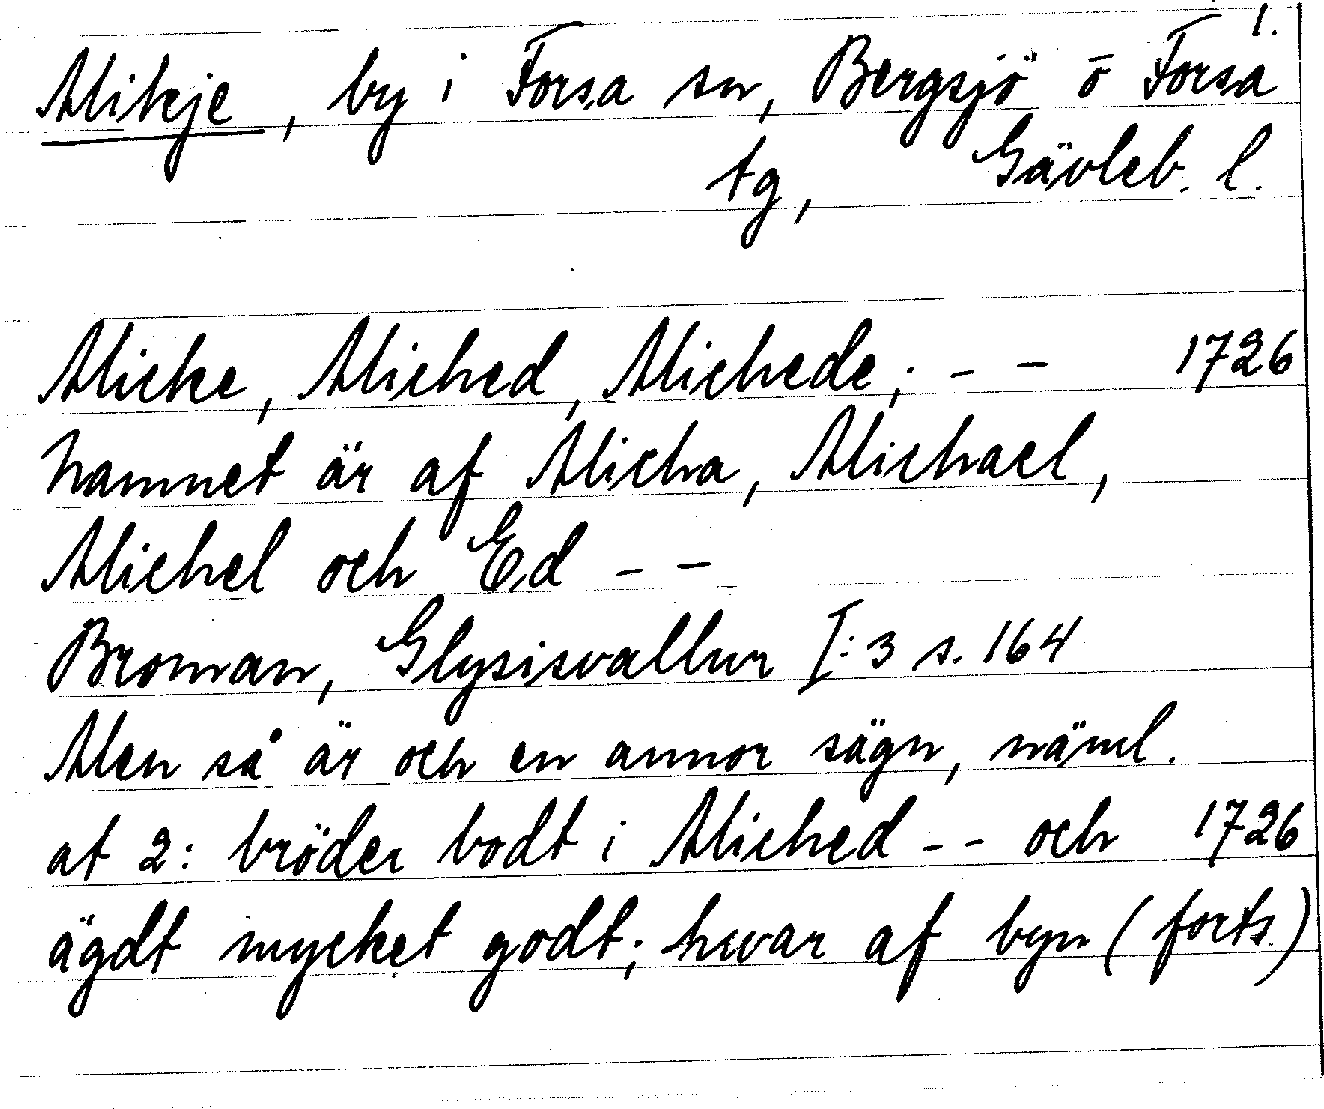 1.
Mikje, by i Forsa sn, Bergsjö o Forsa
tg, Gävleb. l.
Micke, Miched, Michede; - - 1726
Namnet är af Micha, Michael,
Michel och Ed - -
Broman, Glysisvallur I:3 s. 164
Men så är och en annor sägn, näml.
at 2: bröder bodt i Miched - - och 1726
ägdt mycket godt; hwar af byn (forts.)